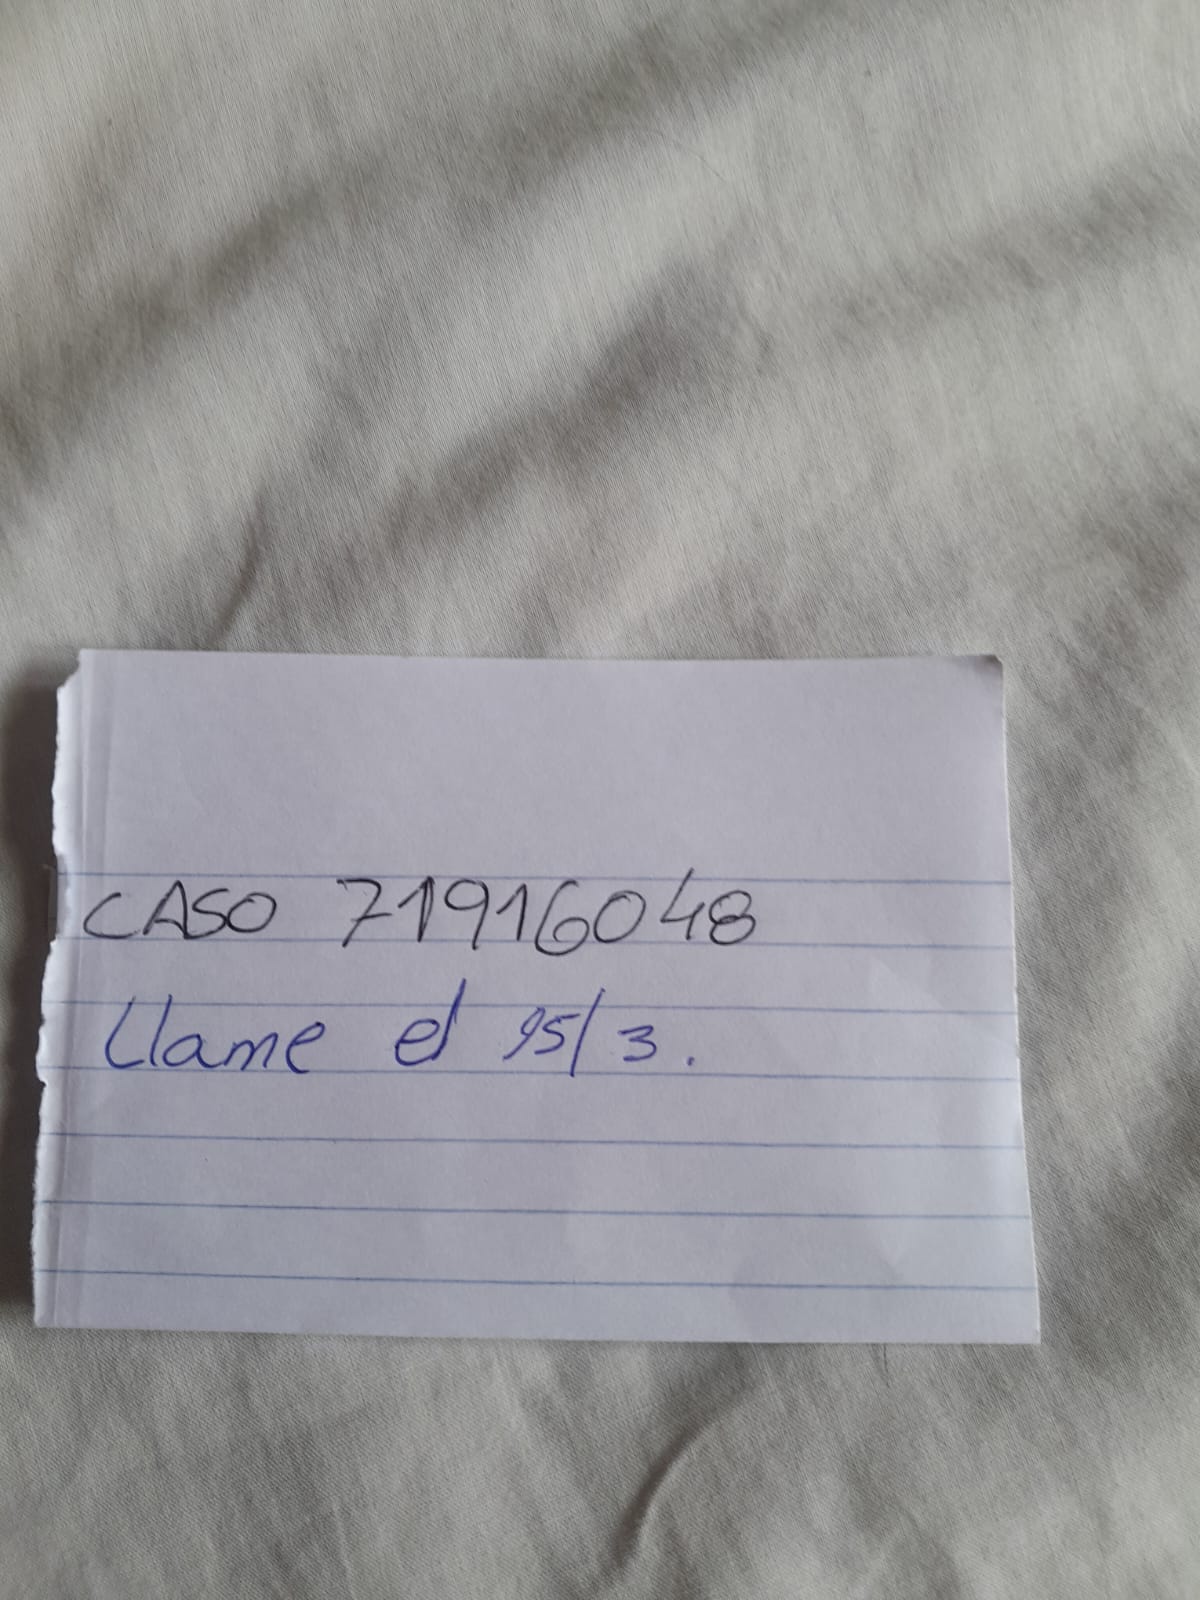 CASO 71916048
Llame el 15/3.